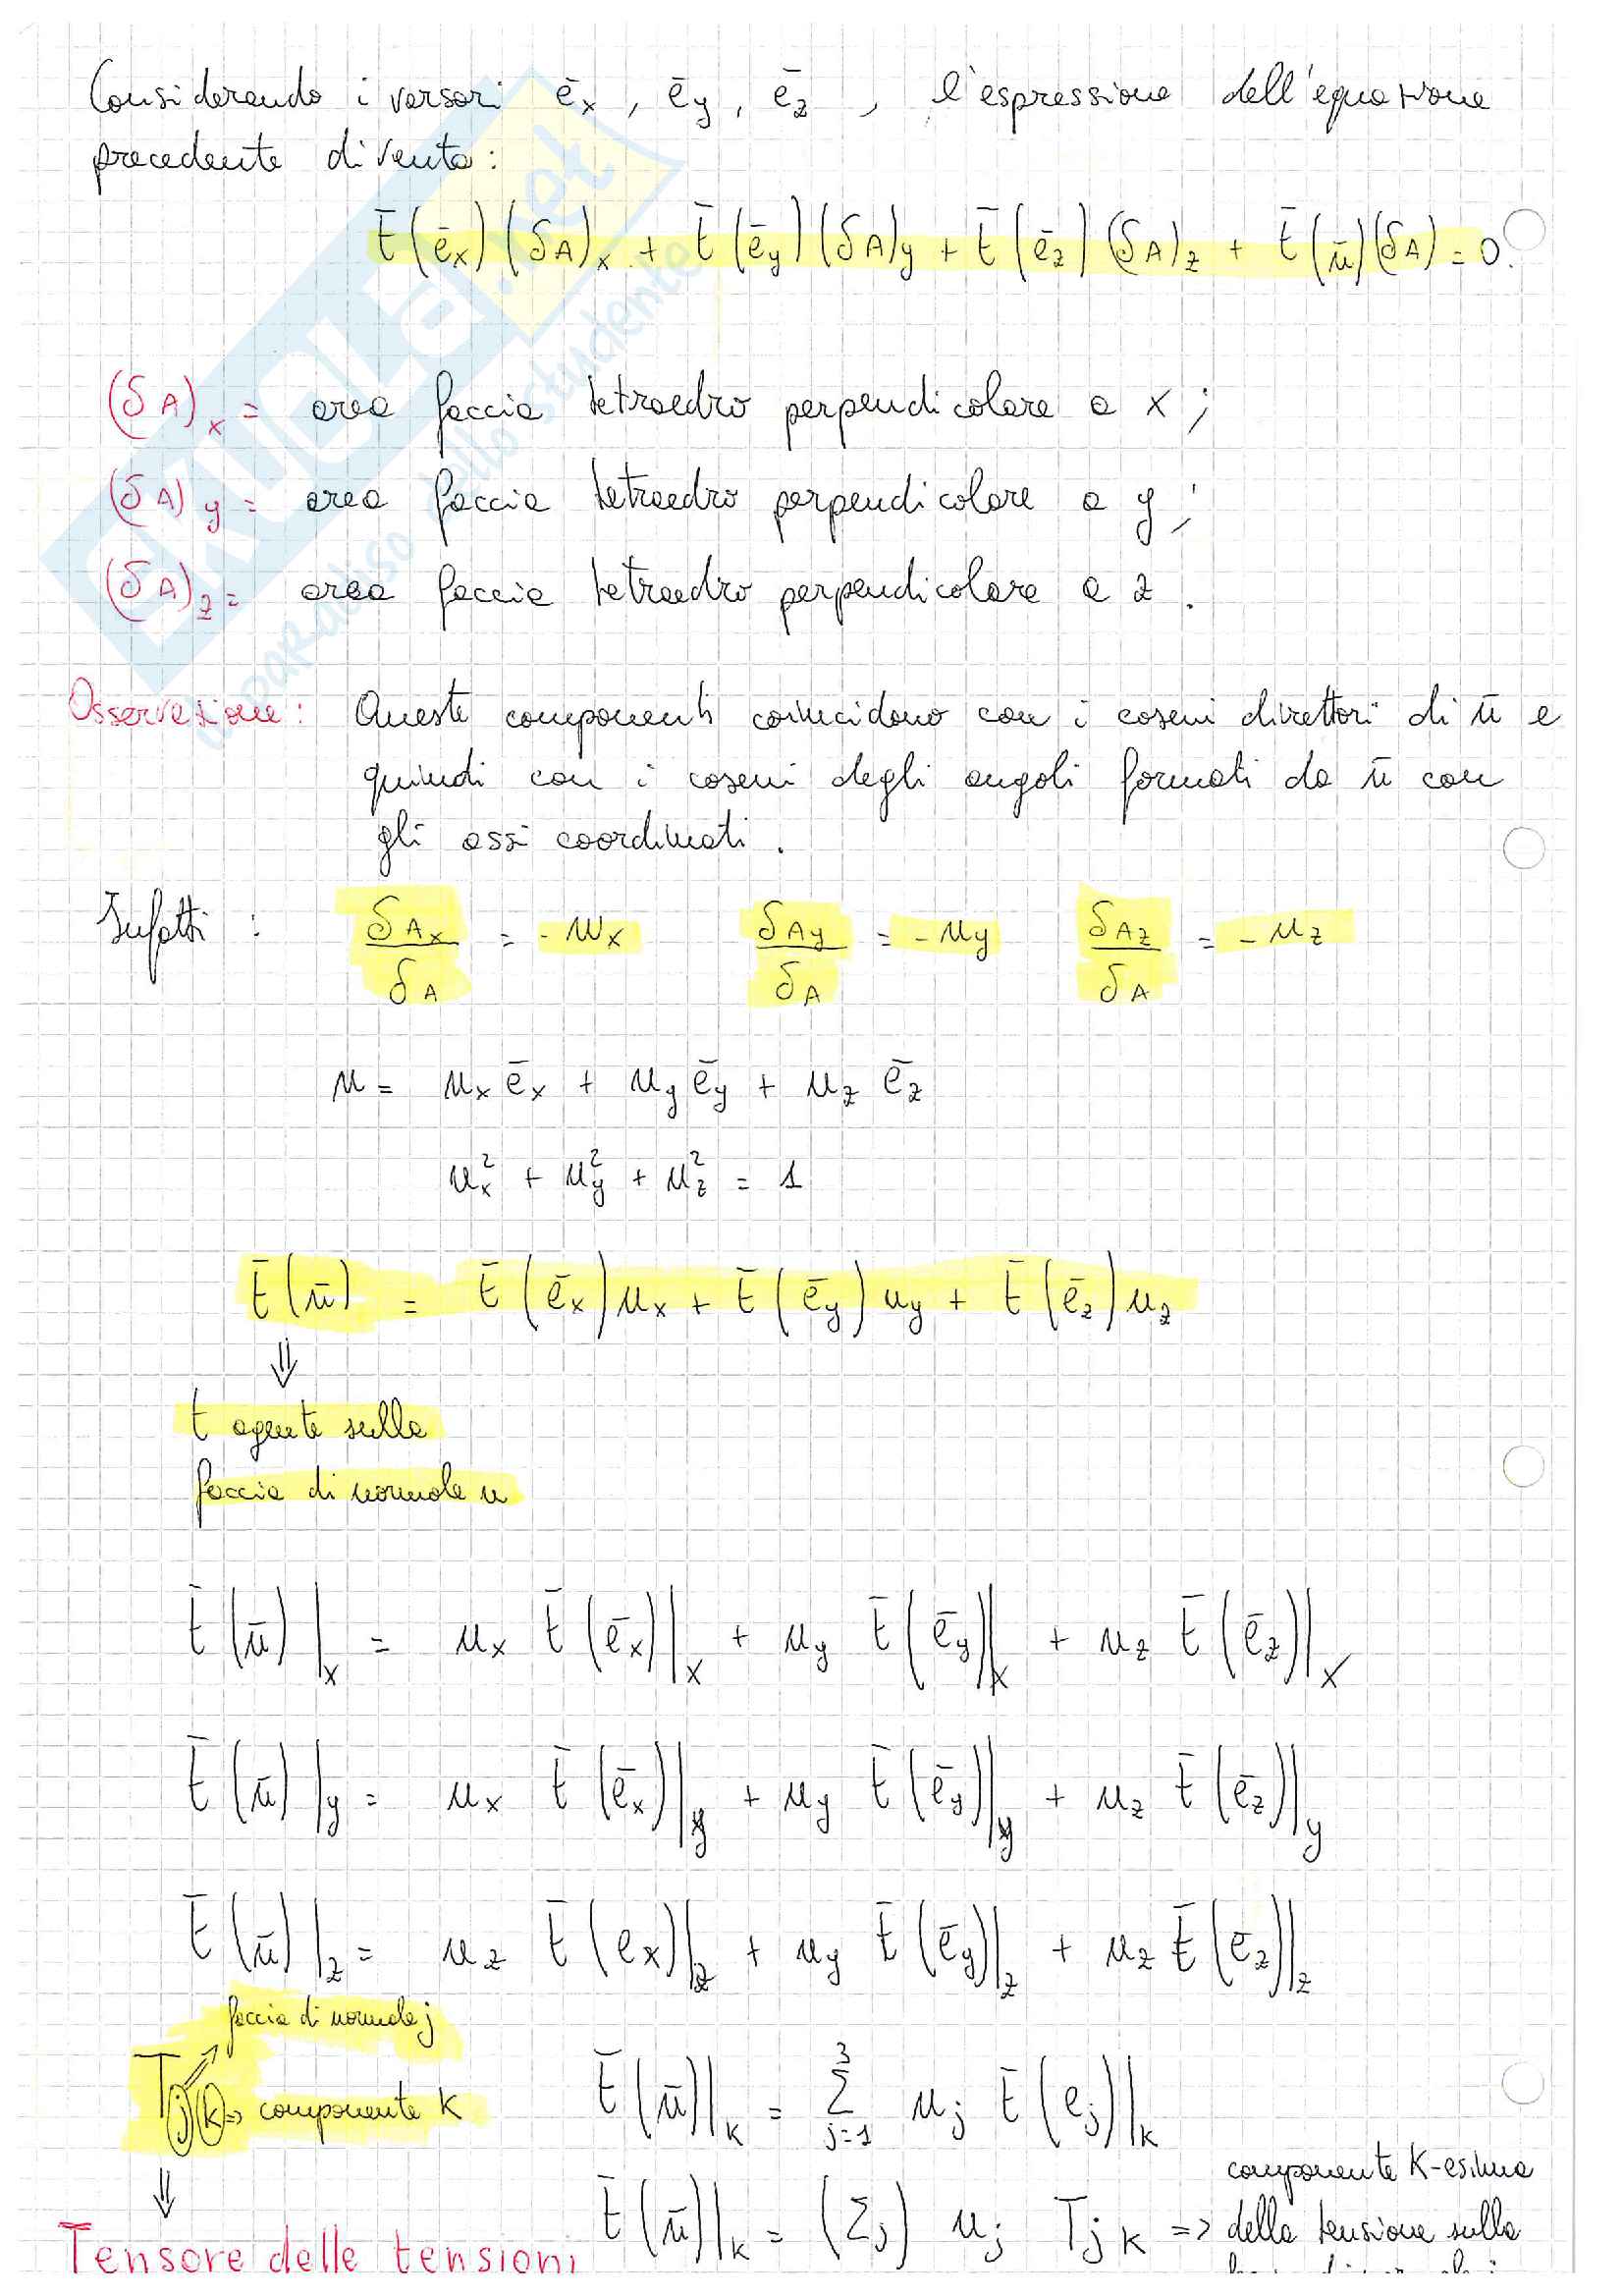 Considerando i versori ēx , ēy , ēz , l'espressione dell'equazione
precedente diventa:
t̄(ēx)(δA)x + t̄(ēy)(δA)y + t̄(ēz)(δA)z + t̄(n̄)(δA) = 0.
(δA)x = area faccia tetraedro perpendicolare a x ;
(δA)y = area faccia tetraedro perpendicolare a y ;
(δA)z = area faccia tetraedro perpendicolare a z .
Osservazione: Queste componenti coincidono con i coseni direttori di n̄ e
quindi con i coseni degli angoli formati da n̄ con
gli assi coordinati .
Infatti : δAx/δA = - nx δAy/δA = - ny δAz/δA = - nz
n = nx ēx + ny ēy + nz ēz
nx² + ny² + nz² = 1
t̄(n̄) = t̄(ēx)nx + t̄(ēy)ny + t̄(ēz)nz
⇓
t agente sulla
faccia di normale n
t̄(n̄)|x = nx t̄(ēx)|x + ny t̄(ēy)|x + nz t̄(ēz)|x
t̄(n̄)|y = nx t̄(ēx)|y + ny t̄(ēy)|y + nz t̄(ēz)|y
t̄(n̄)|z = nz t̄(ex)|z + ny t̄(ēy)|z + nz t̄(ēz)|z
faccia di normale j
Tjk => componente k
t̄(n̄)|k = Σ j=1 3 nj t̄(ej)|k
⇓
t̄(n̄)|k = (Σj) nj Tjk => componente k-esima
della tensione sulla
Tensore delle tensioni
skuola.net
il paradiso dello studente